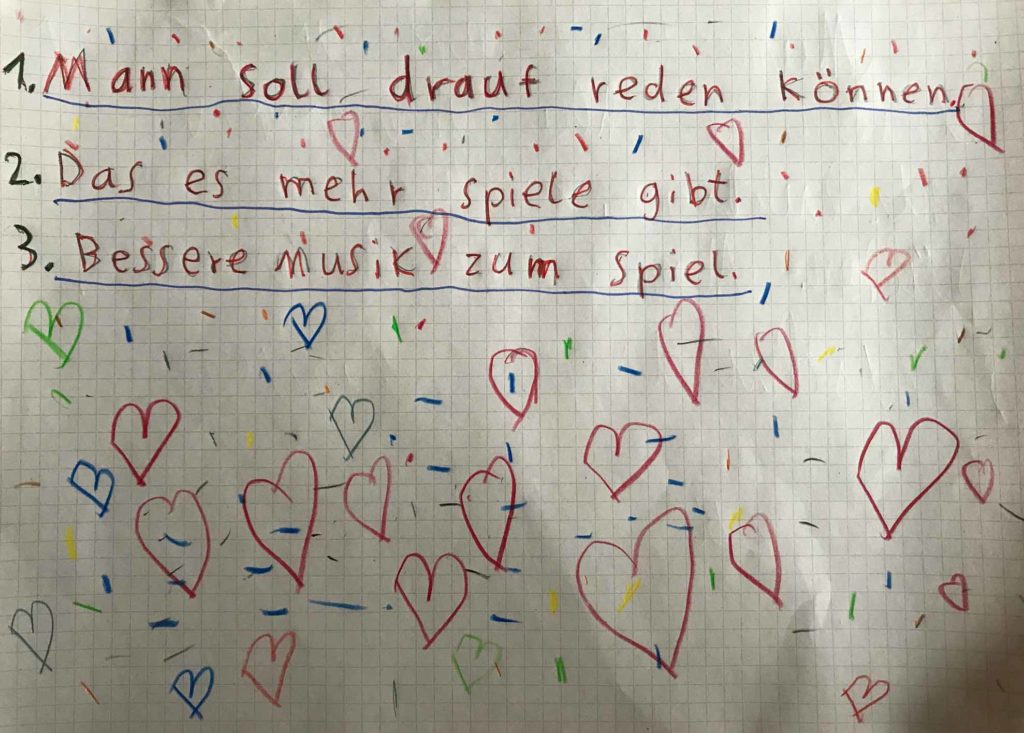 1. Mann soll drauf reden können.
2. Das es mehr spiele gibt.
3. Bessere Musik zum spiel.